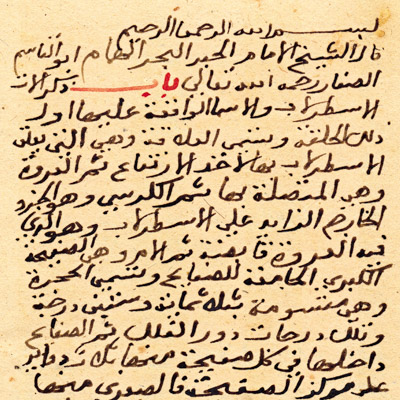 بسم الله الرحمن الرحيم
قال الشيخ الامام الحبر البحر الهمام ابو القاسم
الصفار رحمه الله تعالى باب ذكر آلات
الاسطرلاب والاسما الواقعة عليها اول
ذلك الحلقة وتسمى العلاقة وهي التي يعلق
الاسطرلاب بها لاخذ الارتفاع ثم العروة
وهي المتصلة بها ثم الكرسي وهو الجزو
الخارج الزايد على الاسطرلاب وهو الذي
فيه العروة قايمة ثم الام وهي الصفيحة
الكبرى الجامعة للصفايح وتسمى الحجرة
وهي مقسومة بثلثماية وستين درجة
وتلك درجات دور الفلك ثم الصفايح
داخلها في كل صفيحة منها ثلاث دواير
على مركز الصفيحة فالصغرى منها